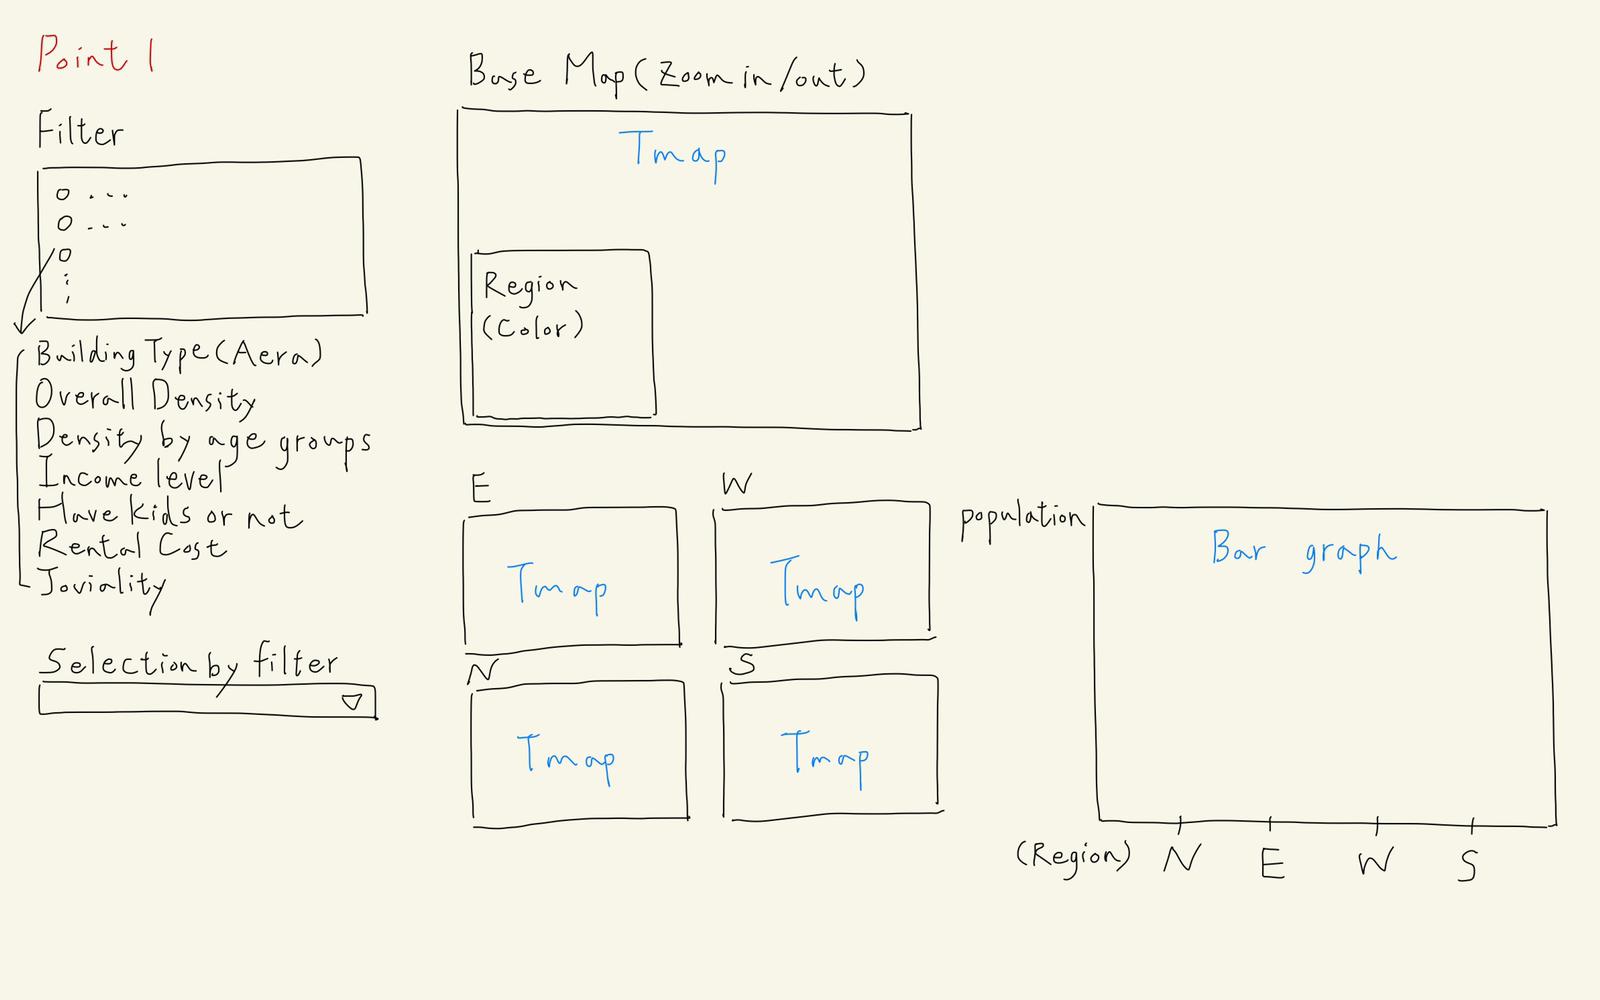 Point 1
Filter
Building Type (Aera)
Overall Density
Density by age groups
Income level
Have kids or not
Rental Cost
Joviality
Selection by filter
Base Map (Zoom in/out)
Tmap
Region
(Color)
E
W
Tmap
Tmap
N
S
Tmap
Tmap
population
Bar graph
(Region) N E W S